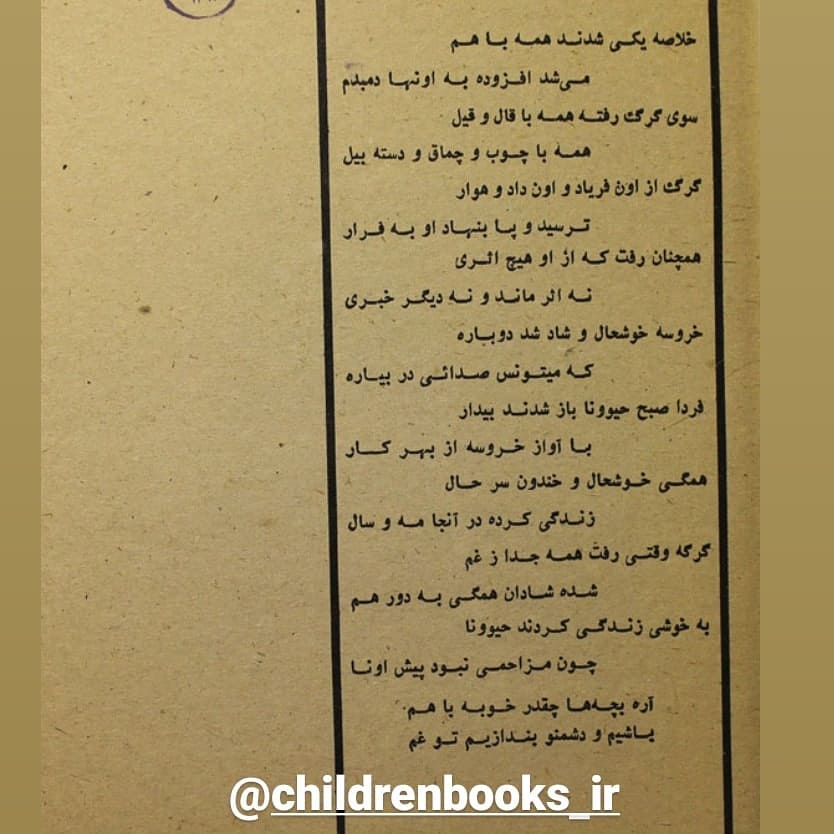 خلاصه یکی شدند همه با هم
می‌شد افزوده به اونها دمبدم
سوی گرگ رفته همه با قال و قیل
همه با چوب و چماق و دسته بیل
گرگ از اون فریاد و اون داد و هوار
ترسید و پا بنهاد او به فرار
همچنان رفت که از او هیچ اثری
نه اثر ماند و نه دیگر خبری
خروسه خوشحال و شاد شد دوباره
که میتونس صدائی در بیاره
فردا صبح حیوونا باز شدند بیدار
با آواز خروسه از بهر کار
همگی خوشحال و خندون سر حال
زندگی کرده در آنجا مه و سال
گرگه وقتی رفت همه جدا ز غم
شده شادان همگی به دور هم
به خوشی زندگی کردند حیوونا
چون مزاحمی نبود پیش اونا
آره بچه‌ها چقدر خوبه با هم
باشیم و دشمنو بندازیم تو غم
@childrenbooks_ir